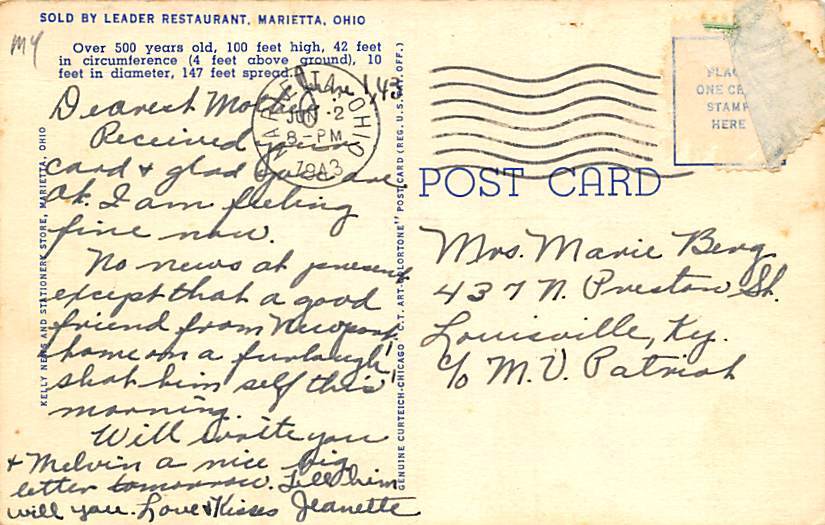 SOLD BY LEADER RESTAURANT, MARIETTA, OHIO
My
Over 500 years old, 100 feet high, 42 feet
in circumference (4 feet above ground), 10
feet in diameter, 147 feet spread.
June 1, 43
Dearest Mother:
Received your
card & glad you are
Ok. I am feeling
fine now.
No news at present
except that a good
friend from Newport
home on a furlough
shot him self this
morning.
Will write you
& Melvin a nice big
letter tomorrow. Tell him
will you. Love & Kisses Jeanette
KELLY NEWS AND STATIONERY STORE, MARIETTA, OHIO
GENUINE CURTEICH-CHICAGO "C.T. ART-COLORTONE" POST CARD (REG. U.S. PAT. OFF.)
MARIETTA OHIO
JUN 2
8-PM
1943
PLACE
ONE CENT
STAMP
HERE
POST CARD
Mrs. Marie Berg
437 N. Preston St.
Louisville, Ky.
c/o M.V. Patriot